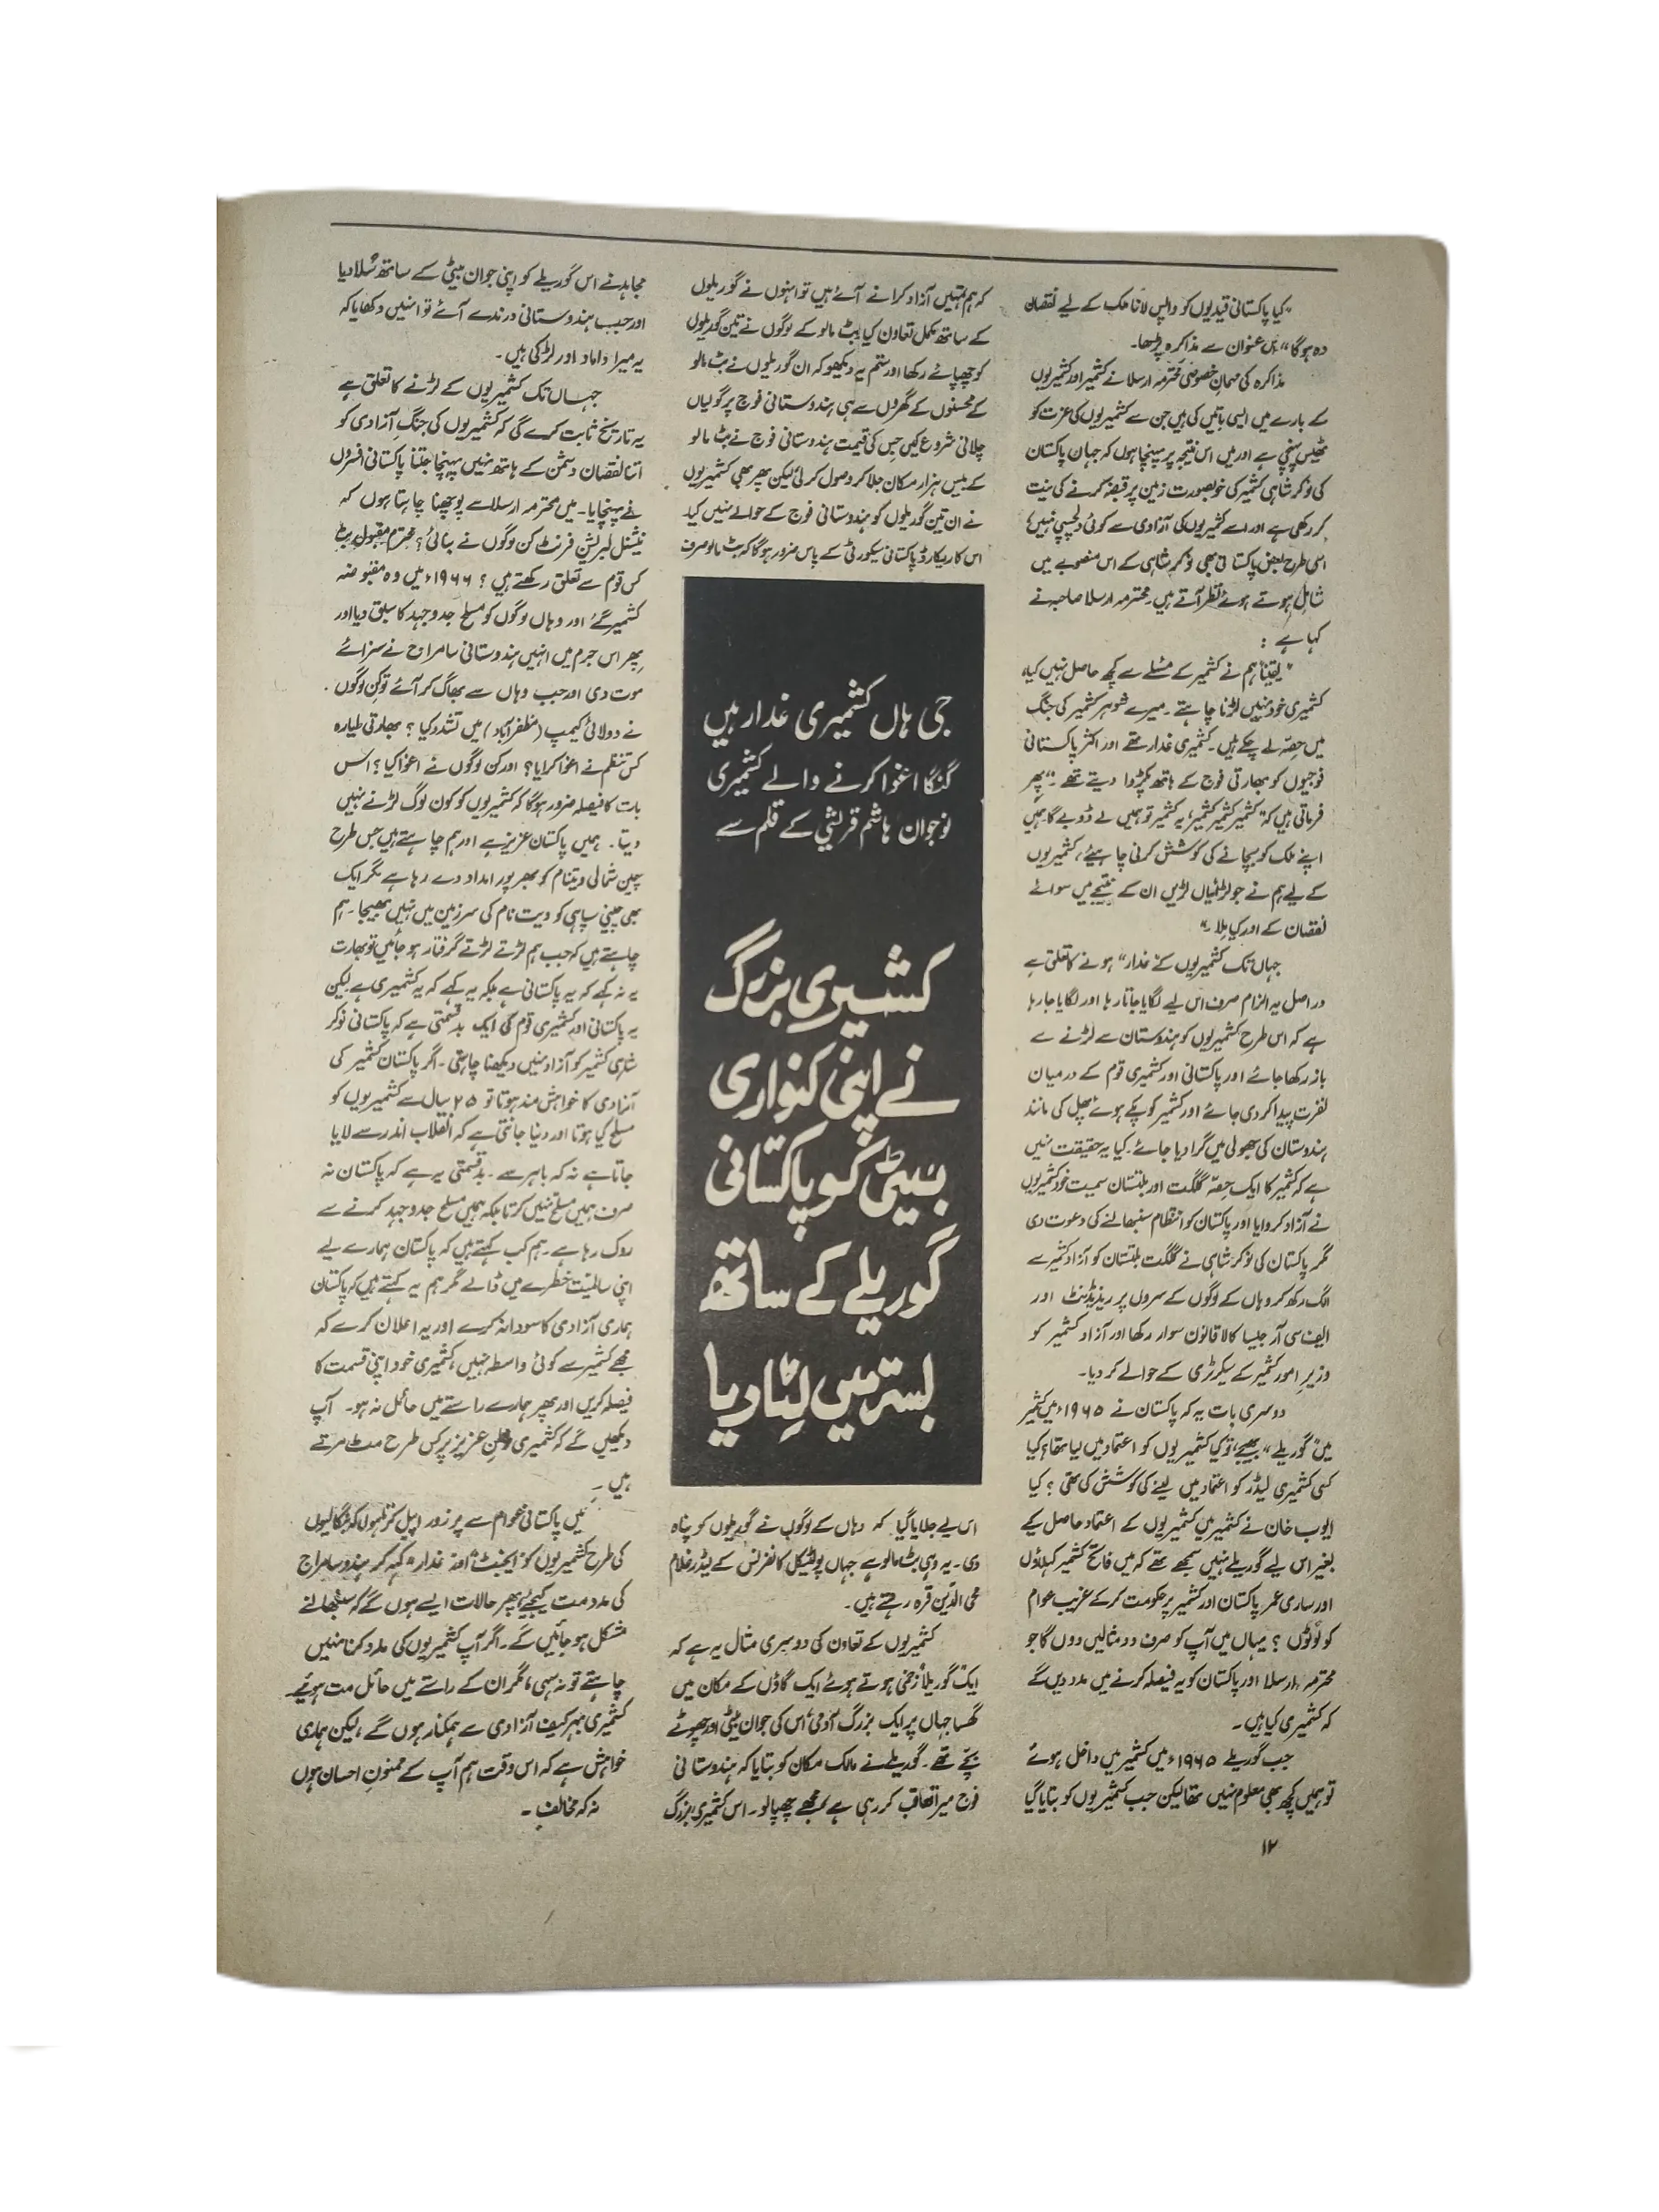 ”کیا پاکستانی قیدیوں کو واپس لانا ملک کے لیے نقصان
دہ ہوگا“ اس عنوان سے مذاکرہ پڑھا۔
مذاکرہ کی مہمانِ خصوصی محترمہ ارسلا نے کشمیر اور کشمیریوں
کے بارے میں ایسی باتیں کی ہیں جن سے کشمیریوں کی عزت کو
ٹھیس پہنچی ہے اور میں اس نتیجہ پر پہنچا ہوں کہ جہاں پاکستان
کی نوکر شاہی کشمیر کی خوبصورت زمین پر قبضہ کرنے کی نیت
کر رکھی ہے اور اسے کشمیریوں کی آزادی سے کوئی دلچسپی نہیں،
اسی طرح بعض پاکستانی بھی نوکر شاہی کے اس منصوبے میں
شامل ہوتے ہوئے نظر آتے ہیں۔ محترمہ ارسلا صاحبہ نے
کہا ہے :
”یقیناً ہم نے کشمیر کے مسئلے سے کچھ حاصل نہیں کیا،
کشمیری خود نہیں لڑنا چاہتے۔ میرے شوہر کشمیر کی جنگ
میں حصّہ لے چکے ہیں۔ کشمیری غدار تھے اور اکثر پاکستانی
فوجیوں کو بھارتی فوج کے ہاتھ پکڑوا دیتے تھے۔“ پھر
فرماتی ہیں کہ ”کشمیر کشمیر کشمیر، یہ کشمیر تو ہمیں لے ڈوبے گا ہمیں
اپنے ملک کو بچانے کی کوشش کرنی چاہیئے، کشمیریوں
کے لیے ہم نے جو لڑائیاں لڑیں ان کے نتیجے میں سوائے
نقصان کے اور کیا ملا۔“
جہاں تک کشمیریوں کے ”غدار“ ہونے کا تعلق ہے
دراصل یہ الزام صرف اس لیے لگایا جاتا رہا اور لگایا جا رہا
ہے کہ اس طرح کشمیریوں کو ہندوستان سے لڑنے سے
باز رکھا جائے اور پاکستانی اور کشمیری قوم کے درمیان
نفرت پیدا کر دی جائے اور کشمیر کو پکے ہوئے پھل کی مانند
ہندوستان کی جھولی میں گرا دیا جائے۔ کیا یہ حقیقت نہیں
ہے کہ کشمیر کا ایک حِصّہ گلگت اور بلتستان سمیت خود کشمیریوں
نے آزاد کروایا اور پاکستان کو انتظام سنبھالنے کی دعوت دی
مگر پاکستان کی نوکر شاہی نے گلگت بلتستان کو آزاد کشمیر سے
الگ رکھ کر وہاں کے لوگوں کے سروں پر ریذیڈنٹ اور
ایف سی آر جیسا کالا قانون سوار رکھا اور آزاد کشمیر کو
وزیرِ امورِ کشمیر کے سیکرٹری کے حوالے کر دیا۔
دوسری بات یہ کہ پاکستان نے ۱۹۶۵ء میں کشمیر
میں ”گوریلے“ بھیجے، تو کیا کشمیریوں کو اعتماد میں لیا تھا؟ کیا
کسی کشمیری لیڈر کو اعتماد میں لینے کی کوشش کی تھی؟ کیا
ایوب خان نے کشمیر میں کشمیریوں کے اعتماد حاصل کیے
بغیر اس لیے گوریلے نہیں بھیجے تھے کہ میں فاتحِ کشمیر کہلاؤں
اور ساری عمر پاکستان اور کشمیر پر حکومت کر کے غریب عوام
کو لوٹوں؟ یہاں میں آپ کو صرف دو مثالیں دوں گا جو
محترمہ ارسلا اور پاکستان کو یہ فیصلہ کرنے میں مدد دیں گے
کہ کشمیری کیا ہیں۔
جب گوریلے ۱۹۶۵ء میں کشمیر میں داخل ہوئے
تو ہمیں کچھ بھی معلوم نہیں تھا لیکن جب کشمیریوں کو بتایا گیا
کہ ہم تمہیں آزاد کرانے آئے ہیں تو انہوں نے گوریلوں
کے ساتھ مکمل تعاون کیا۔ بٹ مالو کے لوگوں نے تین گوریلوں
کو چھپائے رکھا اور ستم یہ دیکھو کہ ان گوریلوں نے بٹ مالو
کے محسنوں کے گھروں سے ہی ہندوستانی فوج پر گولیاں
چلانی شروع کیں جِس کی قیمت ہندوستانی فوج نے بٹ مالو
کے بیس ہزار مکان جلا کر وصول کر لی لیکن پھر بھی کشمیریوں
نے ان تین گوریلوں کو ہندوستانی فوج کے حوالے نہیں کیا۔
اس کا ریکارڈ پاکستانی سیکورٹی کے پاس ضرور ہوگا کہ بٹ مالو صرف
جی ہاں کشمیری غدار ہیں
گنگا اغوا کرنے والے کشمیری
نوجوان ہاشم قریشی کے قلم سے
کشمیری بزرگ
نے اپنی کنواری
بیٹی کو پاکستانی
گوریلے کے ساتھ
بستر میں لِٹا دیا
اس لیے جلایا گیا کہ وہاں کے لوگوں نے گوریلوں کو پناہ
دی۔ یہ وہی بٹ مالو ہے جہاں پولیٹیکل کانفرنس کے لیڈر غلام
محی الدّین قرہ رہتے ہیں۔
کشمیریوں کے تعاون کی دوسری مثال یہ ہے کہ
ایک ”گوریلا“ زخمی ہوتے ہوئے ایک گاؤں کے مکان میں
گھسا جہاں پر ایک بزرگ آدمی، اُس کی جوان بیٹی اور چھوٹے
بچّے تھے۔ گوریلے نے مالک مکان کو بتایا کہ ہندوستانی
فوج میرا تعاقب کر رہی ہے مجھے چھپا لو۔ اس کشمیری بزرگ
مجاہد نے اس گوریلے کو اپنی جوان بیٹی کے ساتھ سُلا دیا
اور جب ہندوستانی درندے آئے تو انہیں دکھایا کہ
یہ میرا داماد اور لڑکی ہیں۔
جہاں تک کشمیریوں کے لڑنے کا تعلق ہے
یہ تاریخ ثابت کرے گی کہ کشمیریوں کی جنگِ آزادی کو
اتنا نقصان دشمن کے ہاتھ نہیں پہنچا جتنا پاکستانی افسروں
نے پہنچایا۔ میں محترمہ ارسلا سے پوچھنا چاہتا ہوں کہ
نیشنل لبریشن فرنٹ کن لوگوں نے بنائی؟ محترم مقبول بٹ
کس قوم سے تعلق رکھتے ہیں؟ ۱۹۶۶ء میں وہ مقبوضہ
کشمیر گئے اور وہاں لوگوں کو مسلح جدوجہد کا سبق دیا اور
پھر اس جرم میں انہیں ہندوستانی سامراج نے سزائے
موت دی اور جب وہاں سے بھاگ کر آئے تو کن لوگوں
نے دولائی کیمپ (مظفر آباد) میں تشدد کیا؟ بھارتی طیارہ
کس تنظیم نے اغوا کرایا؟ اور کن لوگوں نے اغوا کیا؟ اس
بات کا فیصلہ ضرور ہوگا کہ کشمیریوں کو کون لوگ لڑنے نہیں
دیتا۔ ہمیں پاکستان عزیز ہے اور ہم چاہتے ہیں جس طرح
چین شمالی ویتنام کو بھرپور امداد دے رہا ہے مگر ایک
بھی چینی سپاہی کو ویت نام کی سرزمین میں نہیں بھیجا۔ ہم
چاہتے ہیں کہ جب ہم لڑتے لڑتے گرفتار ہو جائیں تو بھارت
یہ نہ کہے کہ یہ پاکستانی ہے بلکہ یہ کہے کہ یہ کشمیری ہے لیکن
یہ پاکستانی اور کشمیری قوم کی ایک بدقسمتی ہے کہ پاکستانی نوکر
شاہی کشمیر کو آزاد نہیں دیکھنا چاہتی۔ اگر پاکستان کشمیر کی
آزادی کا خواہش مند ہوتا تو ۲۵ سال سے کشمیریوں کو
مسلح کیا ہوتا اور دنیا جانتی ہے کہ انقلاب اندر سے لایا
جاتا ہے نہ کہ باہر سے۔ بدقسمتی یہ ہے کہ پاکستان نہ
صرف ہمیں مسلح نہیں کرتا بلکہ ہمیں مسلح جدوجہد کرنے سے
روک رہا ہے۔ ہم کب کہتے ہیں کہ پاکستان ہمارے لیے
اپنی سالمیت خطرے میں ڈالے مگر ہم یہ کہتے ہیں کہ پاکستان
ہماری آزادی کا سودا نہ کرے اور یہ اعلان کرے کہ
مجھے کشمیر سے کوئی واسطہ نہیں، کشمیری خود اپنی قسمت کا
فیصلہ کریں اور پھر ہمارے راستے میں حائل نہ ہو۔ آپ
دیکھیں گے کہ کشمیری وطنِ عزیز پر کس طرح مٹ مرتے
ہیں۔
میں پاکستانی عوام سے پُرزور اپیل کرتا ہوں کہ بنگالیوں
کی طرح کشمیریوں کو ”ایجنٹ“ اور ”غدار“ کہہ کر ہندو سامراج
کی مدد مت کیجئے، پھر حالات ایسے ہوں گے کہ سنبھالنے
مشکل ہو جائیں گے۔ اگر آپ کشمیریوں کی مدد کرنا نہیں
چاہتے تو نہ سہی، مگر ان کے راستے میں حائل مت ہوئیے
کشمیری بہر کیف آزادی سے ہمکنار ہوں گے، لیکن ہماری
خواہش ہے کہ اس وقت ہم آپ کے ممنونِ احسان ہوں
نہ کہ مخالف۔
۱۲